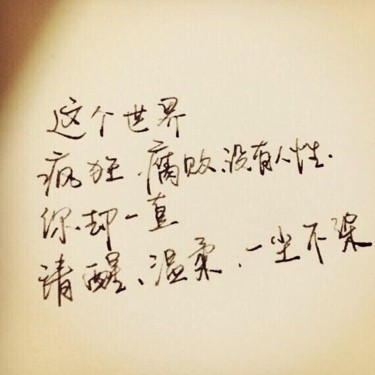 这个世界
疯狂、腐败、没有人性.
你却一直
清醒、温柔、一尘不染